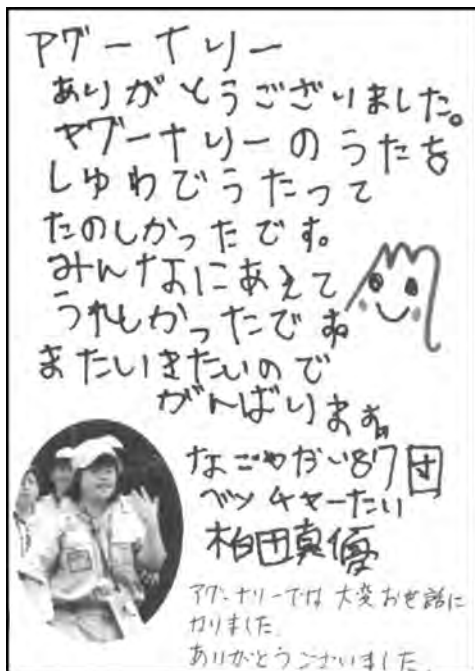 アグーナリー
ありがとうございました。
アグーナリーのうたを
しゅわでうたって
たのしかったです。
みんなにあえて
うれしかったです。
またいきたいので
がんばります。
なごやだい87団
ベンチャーたい
柏田真優
アグーナリーでは大変お世話に
なりました
ありがとうございました